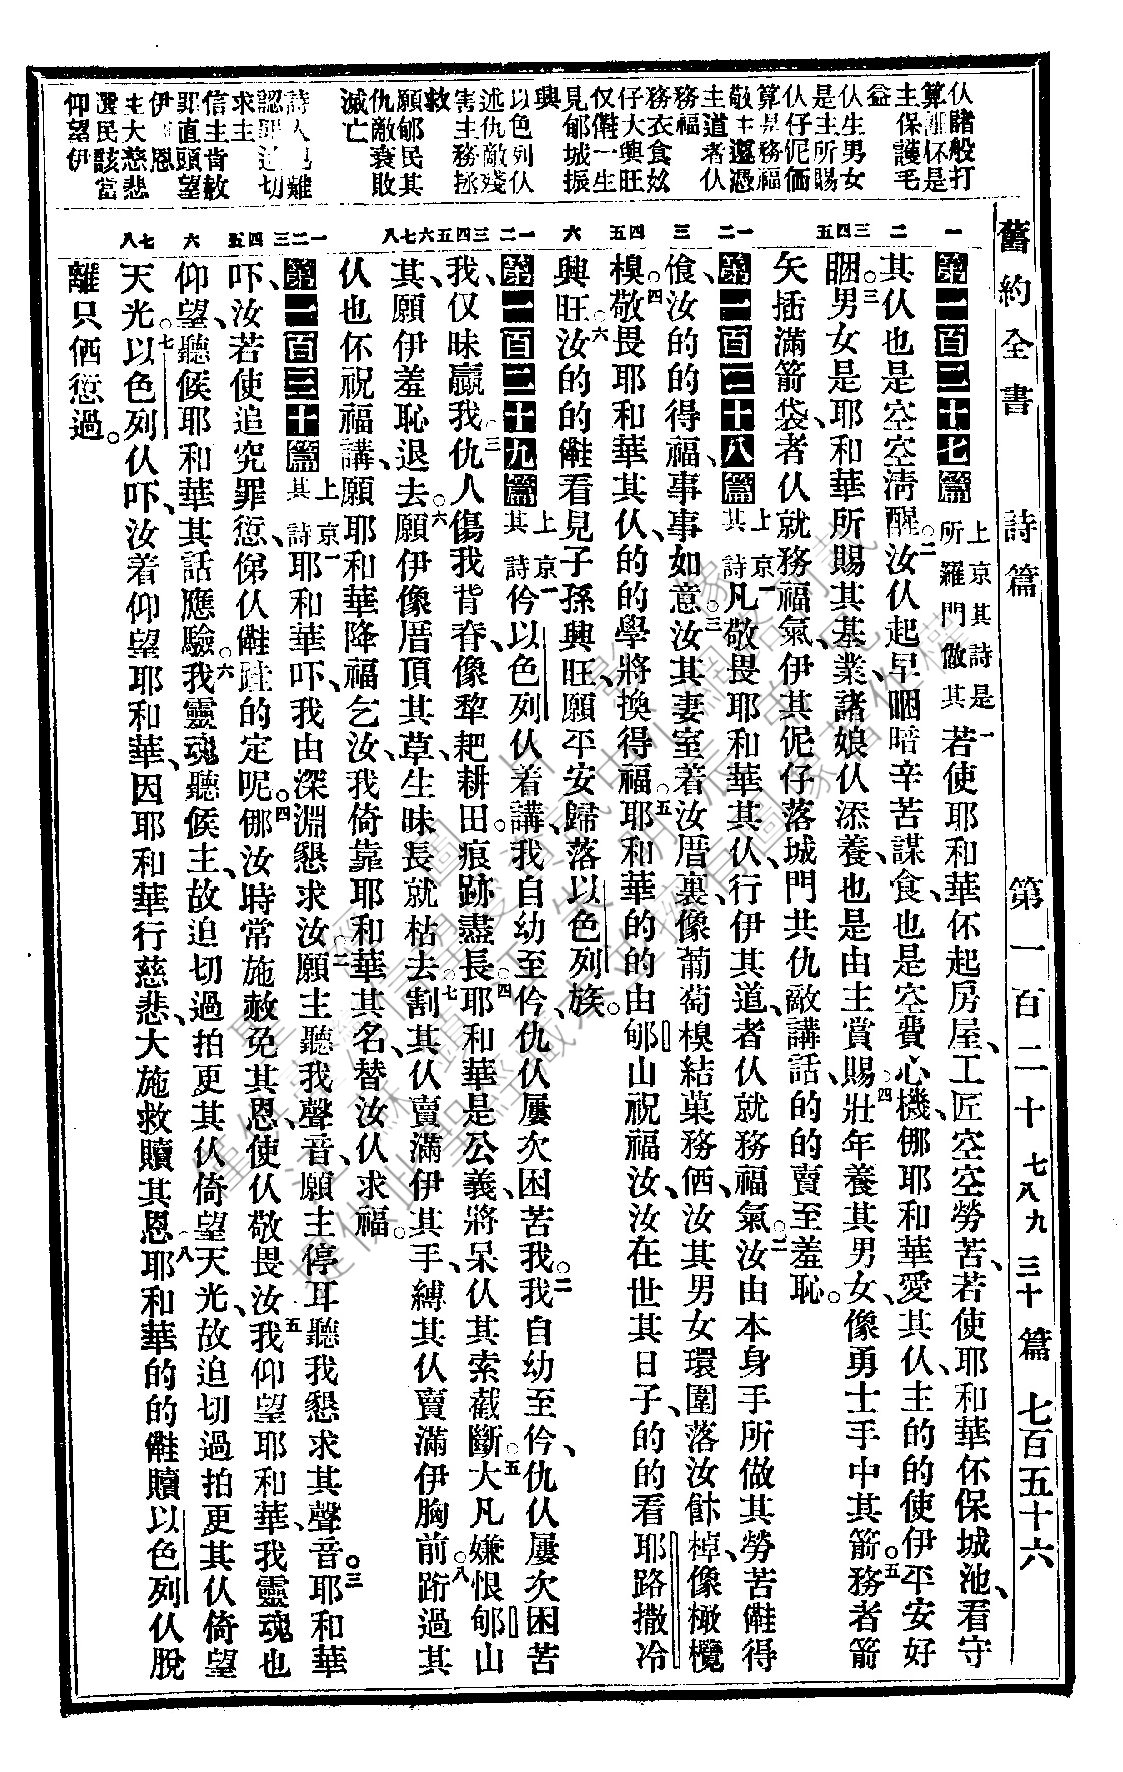 舊約全書 詩篇 第一百二十七八九三十篇 七百五十六
仈諸般打
算離伓是
主保護毛
益
仈生男女
是主所賜
仈仔伲価
算是務福
敬主遵憑
主道者仈
務福
務衣食姒
仔大興旺
仅㒕一生
見郇城振
興
以色列仈
述仇敵殘
害主務拯
救
願郇民其
仇敵衰敗
滅亡
認罪迫切
求主
信主肯赦
罪直頭望
主大慈悲
選民該當
仰望伊
第一百二十七篇 上京其詩是所羅門做其 一若使耶和華伓起房屋、工匠空空勞苦、若使耶和華伓保城池、看守
其仈也是空空淸醒。二汝仈起早睏暗辛苦謀食、也是空費心機、㑚耶和華愛其仈、主的的使伊平安好
睏。三男女是耶和華所賜其基業、諸娘仈添養也是由主賞賜。四壯年養其男女、像勇士手中其箭。五務者箭
矢插滿箭袋者仈就務福氣、伊其伲仔落城門共仇敵講話、的的賣至羞恥。
第一百二十八篇 上京其詩 一凡敬畏耶和華其仈、行伊其道者仈就務福氣。二汝由本身手所做其勞苦㒕得
飧、汝的的得福、事事如意。三汝其妻室着汝厝裏、像葡萄樹結菓務価、汝其男女環圍落汝飲棹、像橄欖
樹。四敬畏耶和華其仈、的的學將換得福。五耶和華的的由郇山祝福汝、汝在世其日子的的看耶路撒冷
興旺。六汝的的㒕看見子孫興旺、願平安歸落以色列族。
第一百二十九篇 上京其詩 一仱以色列仈着講、我自幼至仱仇仈屢次困苦我。二我自幼至仱、仇仈屢次困苦
我、仅昧贏我。三仇人傷我背脊、像犂耙耕田、痕跡盡長。四耶和華是公義、將呆仈其索截斷。五大凡嫌恨郇山
其、願伊羞恥退去。六願伊像厝頂其草、生昧長就枯去。七割其仈賣滿伊其手、縛其仈賣滿伊胸前。八跡過其
仈也伓祝福講、願耶和華降福乞汝、我倚靠耶和華其名、替汝仈求福。
第一百三十篇 上京其詩 一耶和華吓、我由深淵懇求汝。二願主聽我聲音、願主停耳聽我懇求其聲音。三耶和華
吓、汝若使追究罪愆、俤仈㒕跬的定呢。四㑚汝時常施赦免其恩、使仈敬畏汝。五我仰望耶和華、我靈魂也
仰望、聽候耶和華其話應驗。六我靈魂聽候主、故迫切過拍更其仈倚望天光、故迫切過拍更其仈倚望
天光。七以色列仈吓、汝着仰望耶和華、因耶和華行慈悲、大施救贖其恩。八耶和華的的㒕贖以色列仈脫
離只価愆過。